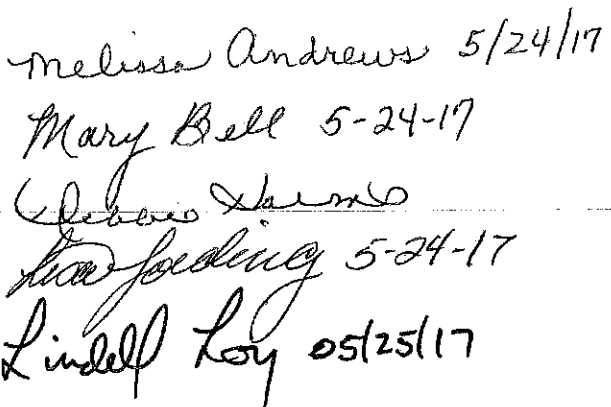 Melissa Andrews 5/24/17
Mary Bell 5-24-17
Debbie
Lisa 5-24-17
Lindell Loy 05/25/17